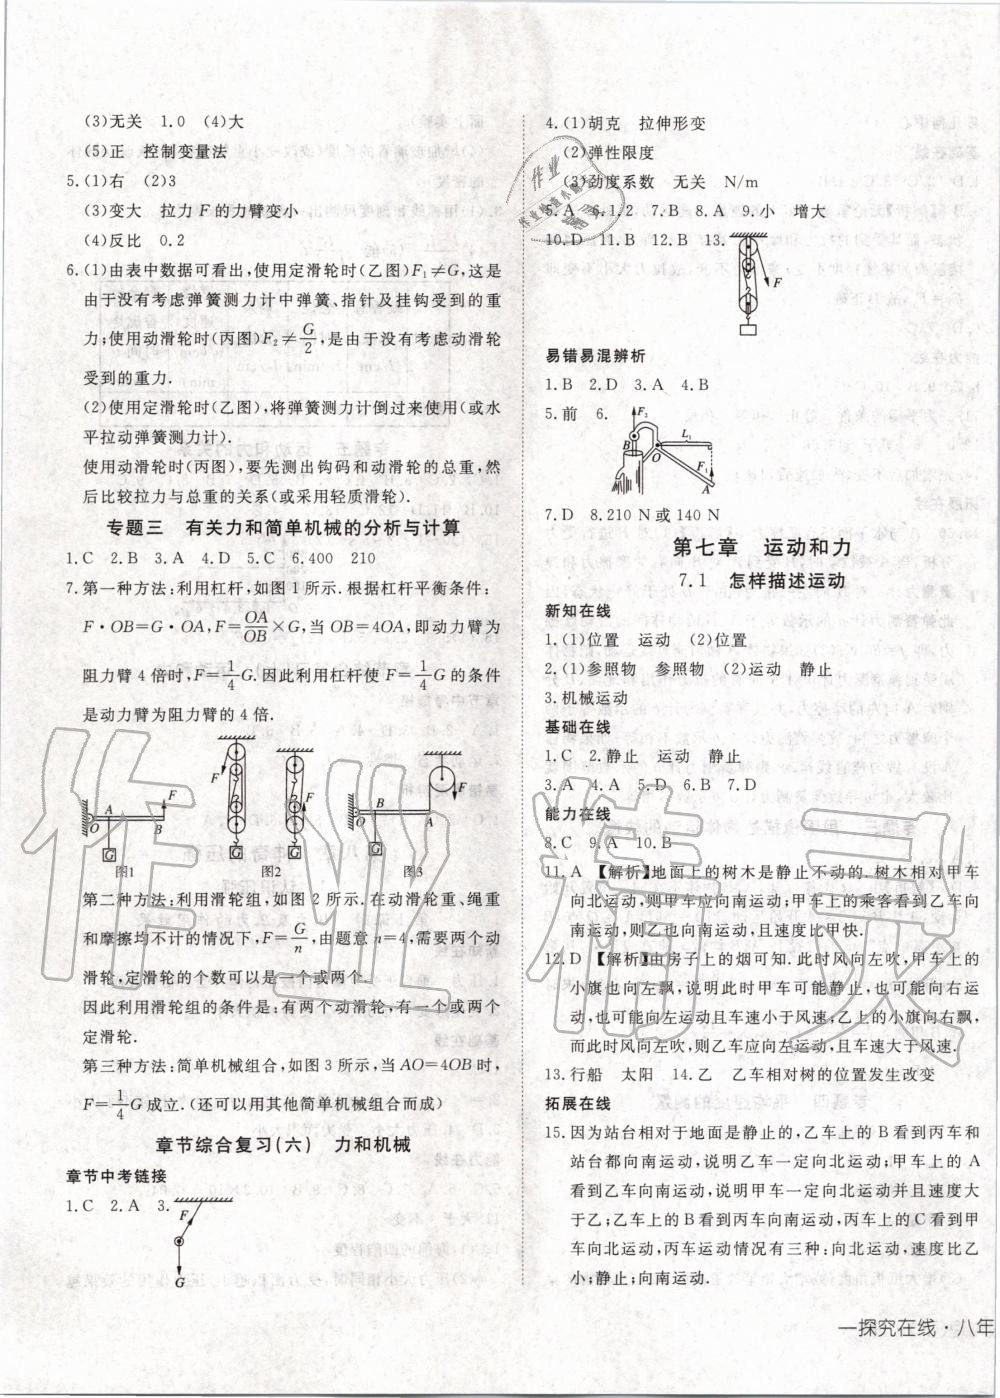 (3)无关 1.0 (4)大
(5)正 控制变量法
5.(1)右 (2)3
(3)变大 拉力F的力臂变小
(4)反比 0.2
6.(1)由表中数据可看出,使用定滑轮时(乙图)F₁≠G,这是
由于没有考虑弹簧测力计中弹簧、指针及挂钩受到的重
力;使用动滑轮时(丙图)F₂≠G/2,是由于没有考虑动滑轮
受到的重力.
(2)使用定滑轮时(乙图),将弹簧测力计倒过来使用(或水
平拉动弹簧测力计).
使用动滑轮时(丙图),要先测出钩码和动滑轮的总重,然
后比较拉力与总重的关系(或采用轻质滑轮).
专题三 有关力和简单机械的分析与计算
1.C 2.B 3.A 4.D 5.C 6.400 210
7.第一种方法:利用杠杆,如图1所示.根据杠杆平衡条件:
F·OB=G·OA,F=OA/OB×G,当OB=4OA,即动力臂为
阻力臂4倍时,F=1/4G.因此利用杠杆使F=1/4G的条件
是动力臂为阻力臂的4倍.
F F F
A B O G
B A O G
G G
图1 图2 图3
第二种方法:利用滑轮组,如图2所示.在动滑轮重、绳重
和摩擦均不计的情况下,F=G/n,由题意n=4,需要两个动
滑轮,定滑轮的个数可以是一个或两个.
因此利用滑轮组的条件是:有两个动滑轮,有一个或两个
定滑轮.
第三种方法:简单机械组合,如图3所示,当AO=4OB时,
F=1/4G成立.(还可以用其他简单机械组合而成)
章节综合复习(六) 力和机械
章节中考链接
1.C 2.A 3.
F
G
4.(1)胡克 拉伸形变
(2)弹性限度
(3)劲度系数 无关 N/m
5.A 6.1.2 7.B 8.A 9.小 增大
10.D 11.B 12.B 13.
F
易错易混辨析
1.B 2.D 3.A 4.B
5.前 6.
F₂ L₁ B O F₁ A
7.D 8.210 N或140 N
第七章 运动和力
7.1 怎样描述运动
新知在线
1.(1)位置 运动 (2)位置
2.(1)参照物 参照物 (2)运动 静止
3.机械运动
基础在线
1.C 2.静止 运动 静止
3.A 4.A 5.D 6.B 7.D
能力在线
8.C 9.A 10.B
11.A 【解析】地面上的树木是静止不动的.树木相对甲车
向北运动,则甲车应向南运动;甲车上的乘客看到乙车向
南运动,则乙也向南运动,且速度比甲快.
12.D 【解析】由房子上的烟可知.此时风向左吹,甲车上的
小旗也向左飘,说明此时甲车可能静止,也可能向右运
动,也可能向左运动且车速小于风速,乙上的小旗向右飘,
而此时风向左吹,则乙车应向左运动,且车速大于风速.
13.行船 太阳 14.乙 乙车相对树的位置发生改变
拓展在线
15.因为站台相对于地面是静止的,乙车上的B看到丙车和
站台都向南运动,说明乙车一定向北运动;甲车上的A
看到乙车向南运动,说明甲车一定向北运动并且速度大
于乙;乙车上的B看到丙车向南运动,丙车上的C看到甲
车向北运动,丙车运动情况有三种:向北运动,速度比乙
小;静止;向南运动.
—探究在线·八年
作业精灵